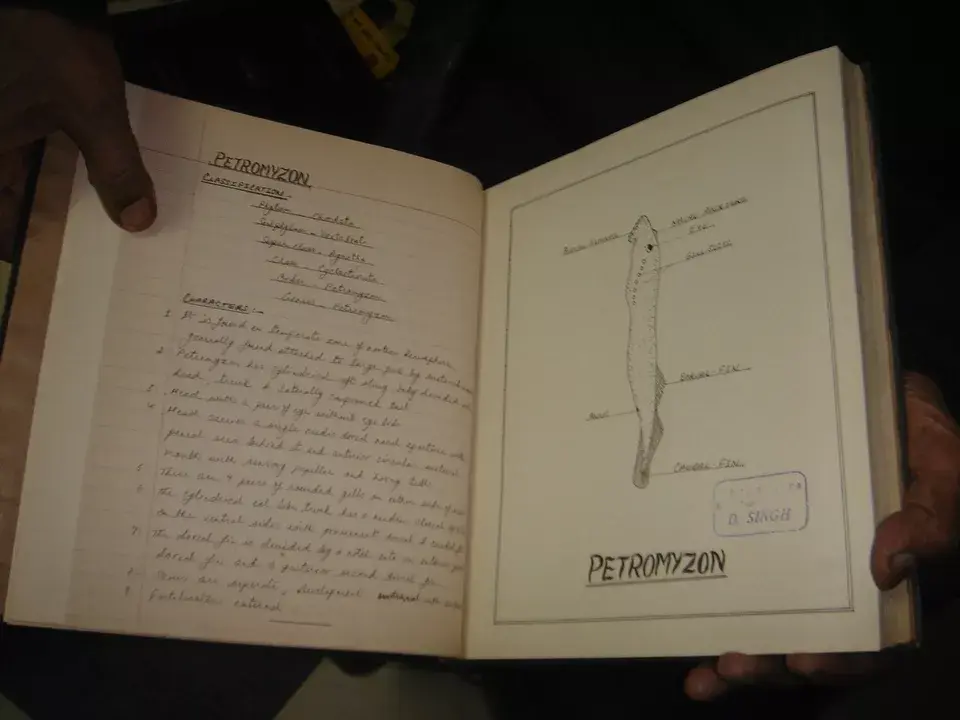 PETROMYZON
CLASSIFICATION -
Phylum - Chordata
Subphylum - Vertebrata
Super class - Agnatha
Class - Cyclostomata
Order - Petromyzon
Genus - Petromyzon
CHARACTERS :-
1. It is found in temperate zone of northern hemisphere
generally found attached to large fish by
2. Petromyzon has cylindrical along body divided in
head, trunk & laterally compressed tail
3. Head with a pair of eye without eye lid
4. Head a single median dorsal nasal aperture with
pineal area behind it and anterior circular
mouth with and horny teeth
5. There are 7 pairs of rounded gills on either side of
6. The cylindrical eel like trunk has a median
on the ventral side with prominent
7. The dorsal fin is divided by a notch into an anterior
dorsal fin and a posterior second dorsal fin
8. are separate, Development
9. Fertilization external
NASAL APERTURE
EYE
GILL SLITS
DORSAL FIN
CAUDAL FIN
D. SINGH
PETROMYZON